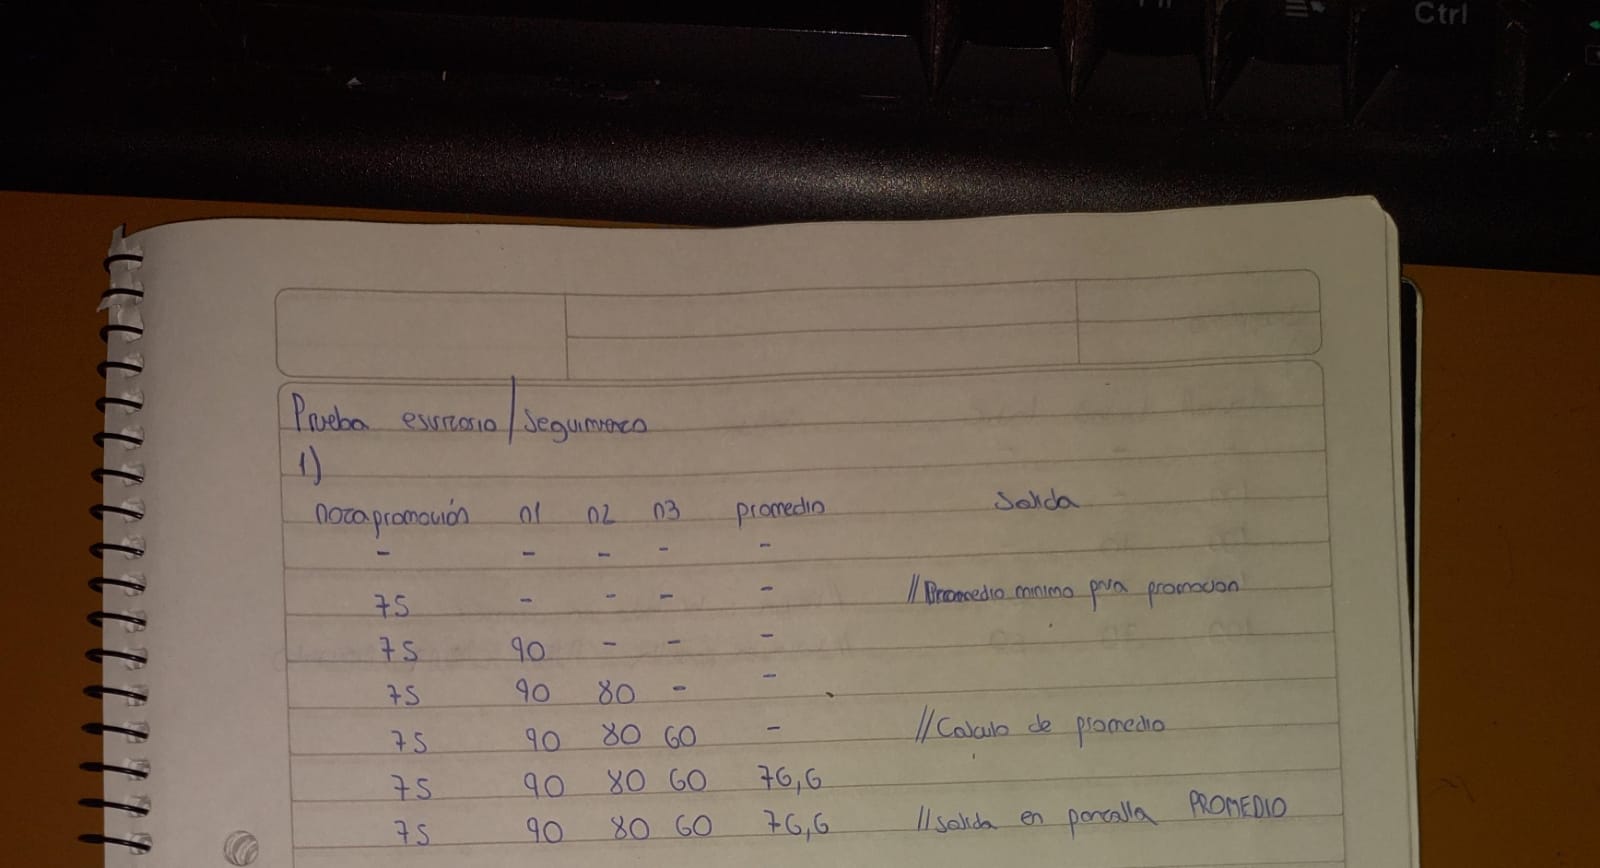 Ctrl
Prueba escritorio / Seguimiento
1)
notapromoción n1 n2 n3 promedio Salida
- - - - -
75 - - - - // Promedio minimo para promocion
75 90 - - -
75 90 80 - -
75 90 80 60 - // Calculo de promedio
75 90 80 60 76,6
75 90 80 60 76,6 // salida en pantalla PROMEDIO